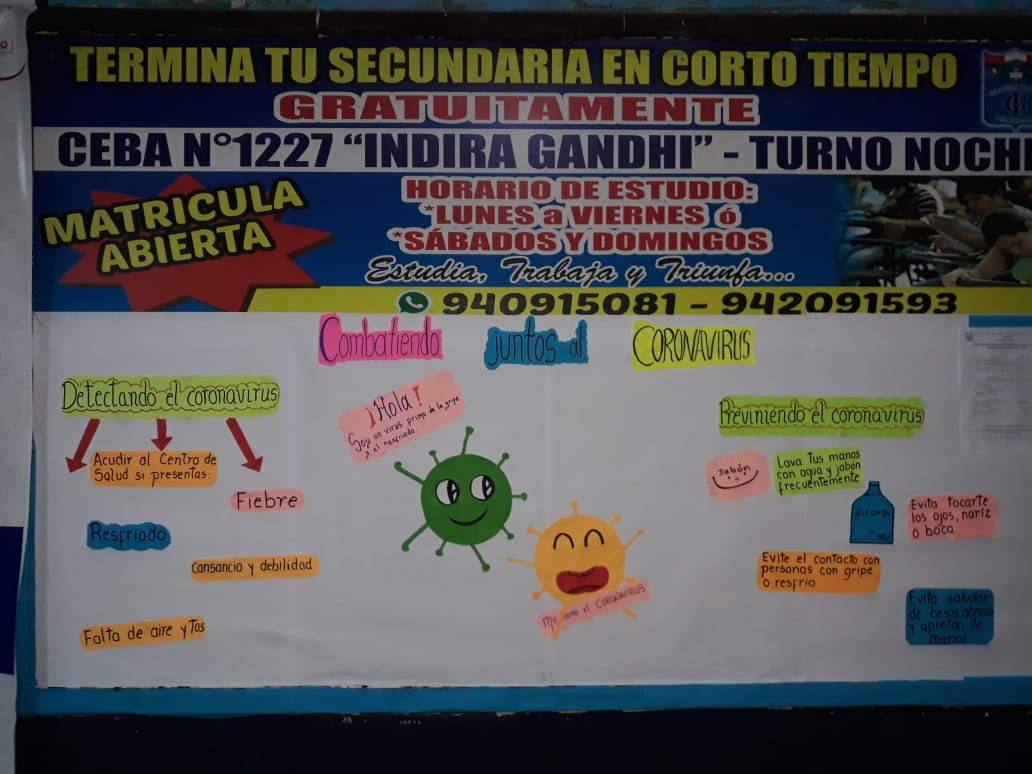 TERMINA TU SECUNDARIA EN CORTO TIEMPO
GRATUITAMENTE
CEBA N°1227 “INDIRA GANDHI” - TURNO NOCH
MATRICULA
ABIERTA
HORARIO DE ESTUDIO:
*LUNES a VIERNES ó
*SÁBADOS Y DOMINGOS
Estudia, Trabaja y Triunfa...
940915081 - 942091593
Combatiendo juntos al CORONAVIRUS
Detectando el coronavirus
Acudir al Centro de
Salud si presentas:
Fiebre
Resfriado
Cansancio y debilidad
Falta de aire y Tos
¡Hola!
Soy un virus primo de la gripe
y el resfriado
Me llamo el CORONAVIRUS
Previniendo el coronavirus
Jabón
Lava Tus manos
con agua y jabón
frecuentemente
ALCOHOL
Evita tocarte
los ojos, nariz
o boca
Evite el contacto con
personas con gripe
o resfrio
Evita saludar
de besos, abrazo
y apreton de
manos